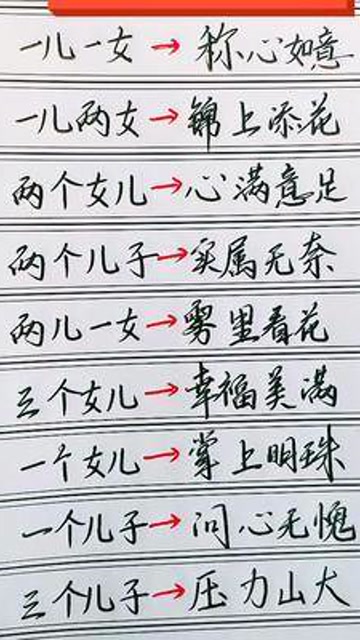 一儿一女→称心如意
一儿两女→锦上添花
两个女儿→心满意足
两个儿子→实属无奈
两儿一女→雾里看花
三个女儿→幸福美满
一个女儿→掌上明珠
一个儿子→问心无愧
三个儿子→压力山大